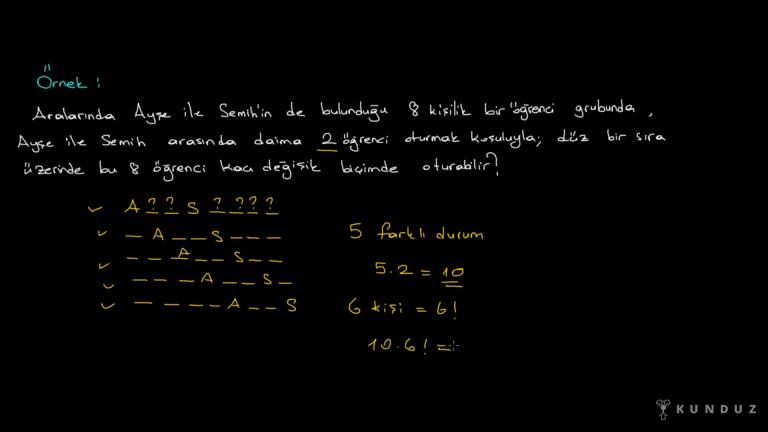 Örnek :
Aralarında Ayşe ile Semih'in de bulunduğu 8 kişilik bir öğrenci grubunda,
Ayşe ile Semih arasında daima 2 öğrenci oturmak koşuluyla; düz bir sıra
üzerinde bu 8 öğrenci kaç değişik biçimde oturabilir?
✓ A ? ? S ? ? ? ?
✓ _ A _ _ S _ _ _
✓ _ _ A _ _ S _ _
✓ _ _ _ A _ _ S _
✓ _ _ _ _ A _ _ S
5 farklı durum
5.2 = 10
6 kişi = 6!
10.6! =
KUNDUZ